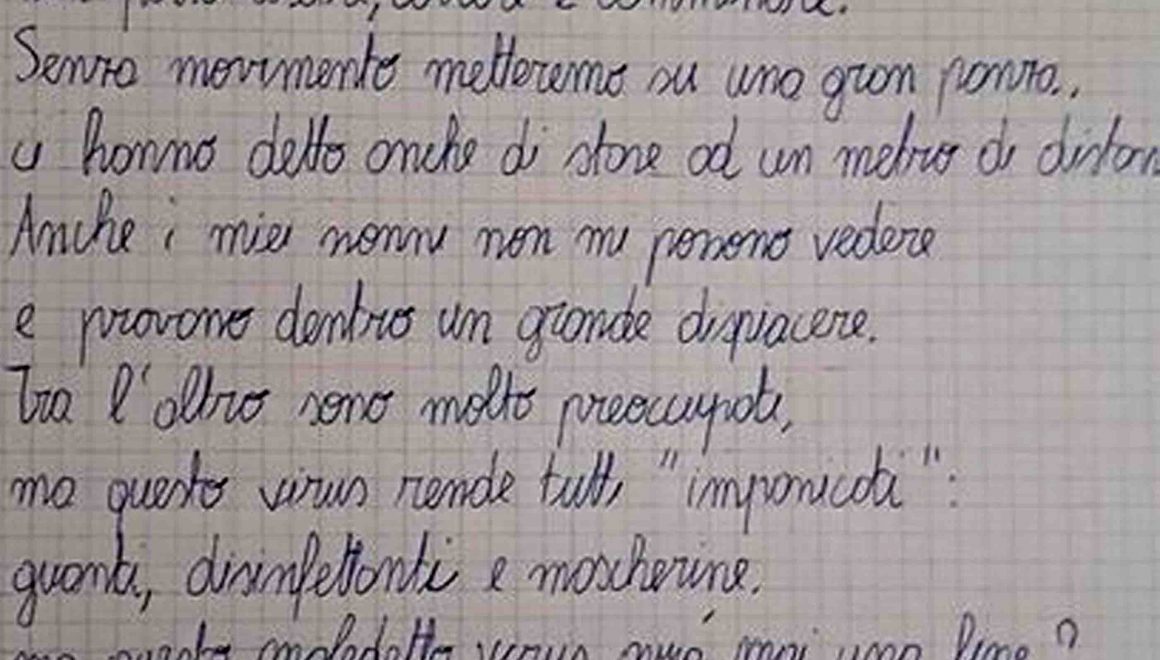 Senza movimento metteremo su una gran panza..
ci hanno detto anche di stare ad un metro di distan
Anche i miei nonni non mi possono vedere
e provano dentro un grande dispiacere.
Tra l'altro sono molto preoccupati,
ma questo virus rende tutti "impanicati":
guanti, disinfettanti e mascherine.
ma questo maledetto virus avrà mai una fine?